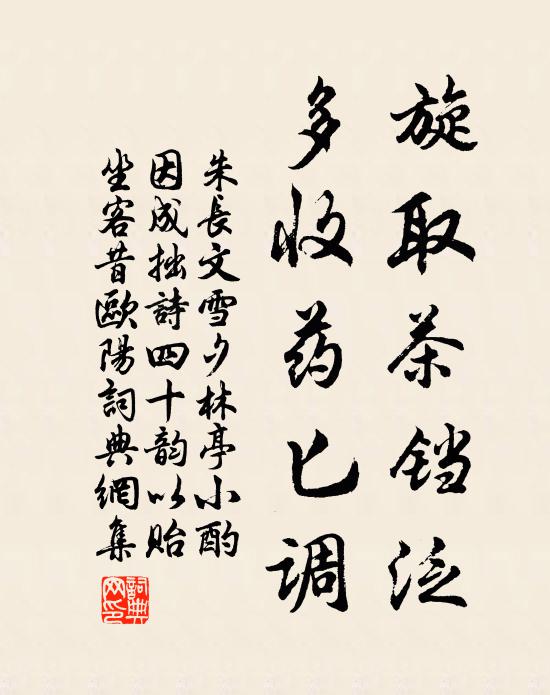 旋取茶铛泛
多收药匕调
朱長文雪夕林亭小酌
因成拙詩四十韵以貽
坐客昔歐陽詞典網集
詞典
网印